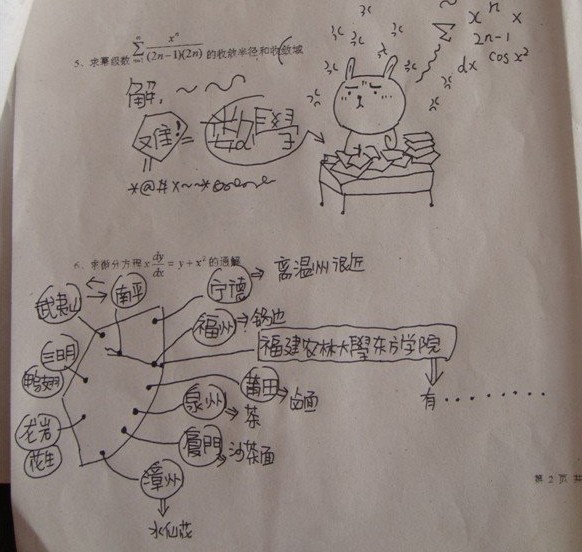 5、求幂级数 \sum_{n=1}^{\infty} \frac{x^n}{(2n-1)(2n)} 的收敛半径和收敛域
x n x
Σ 2n-1
dx cos x²
解:
又难!
*@#x~~*
6、求微分方程 x \frac{dy}{dx} = y + x² 的通解
武夷山
南平
宁德 → 离温州很近
福州 → 锅边
福建农林大學东方学院
有........
三明
鸭姆
莆田 → 卤面
泉州 → 茶
龙岩
花生
厦門 → 沙茶面
漳州
水仙花
第 2 页 共